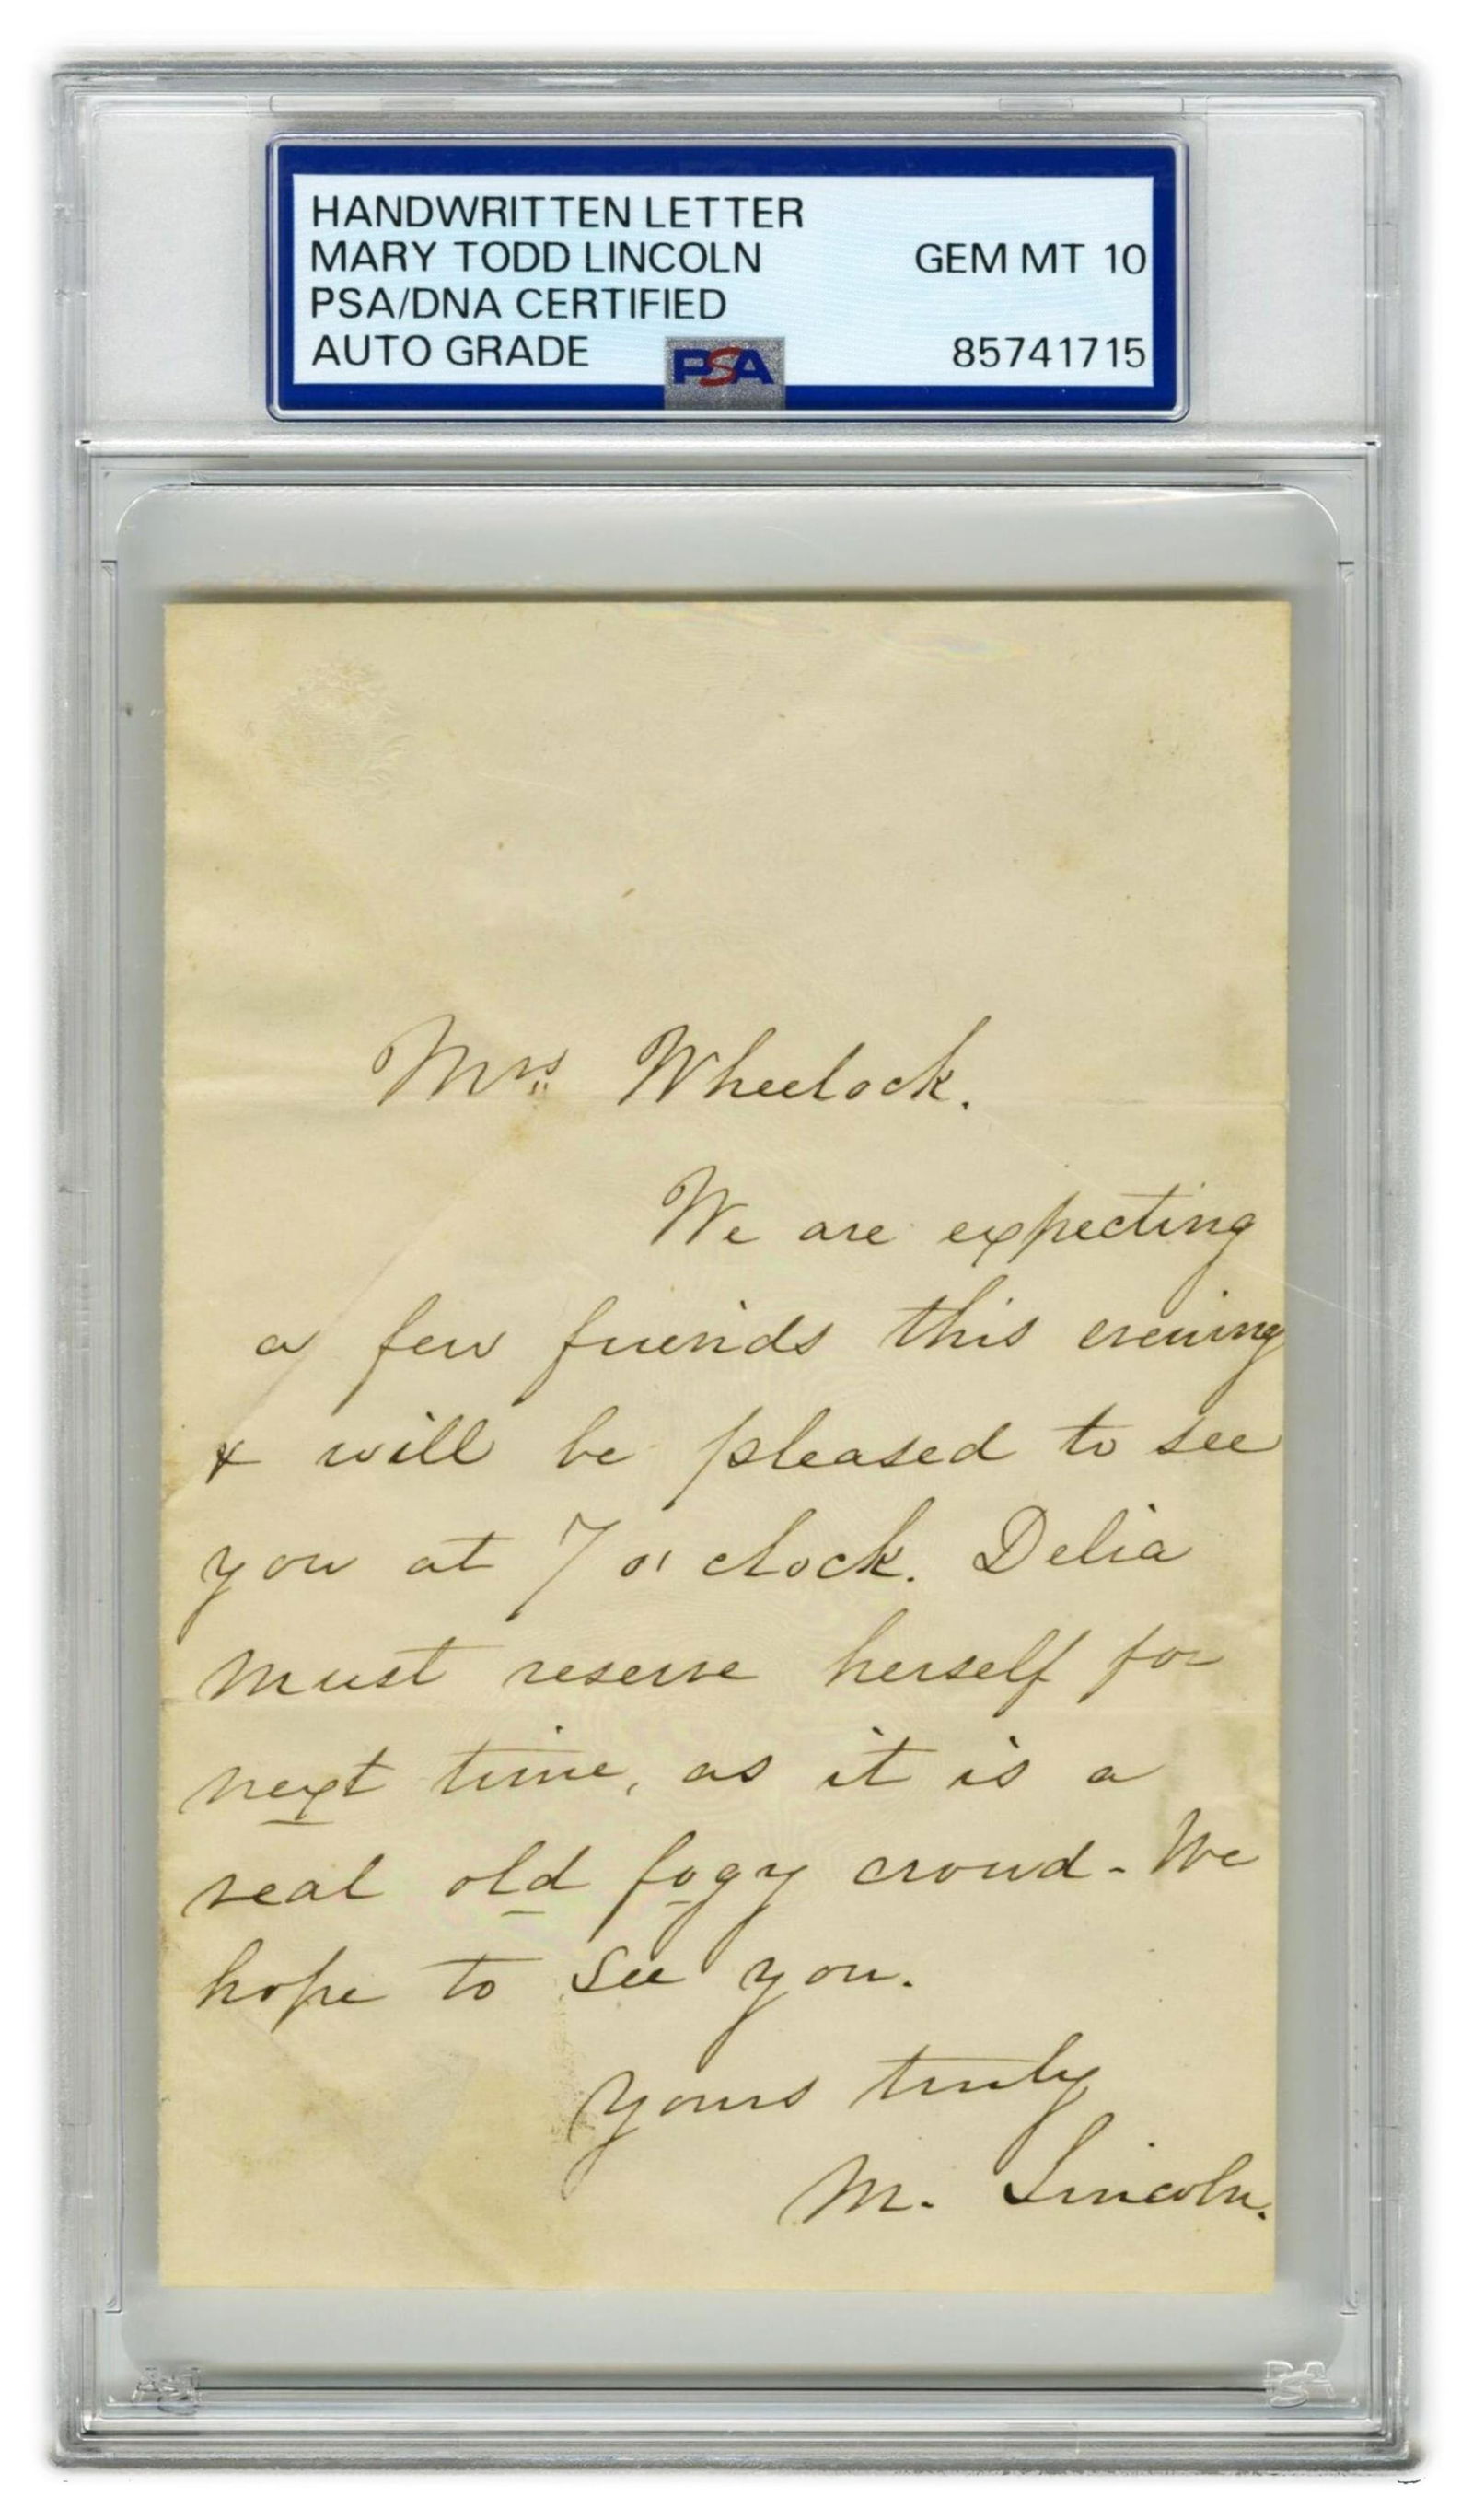 HANDWRITTEN LETTER
MARY TODD LINCOLN GEM MT 10
PSA/DNA CERTIFIED
AUTO GRADE PSA 85741715
Mrs Wheelock.
We are expecting
a few friends this evening
& will be pleased to see
you at 7 o' clock. Delia
must reserve herself for
next time, as it is a
real old fogy crowd - We
hope to see you.
Yours truly
M. Lincoln.
PSA PSA